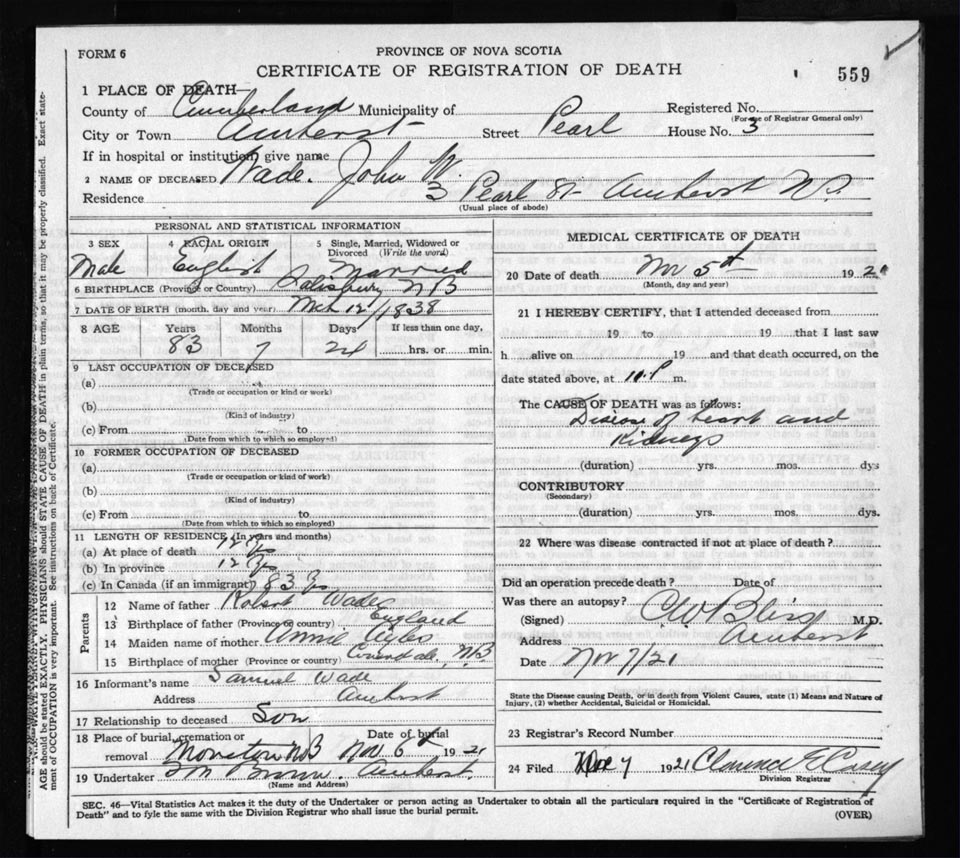 FORM 6
PROVINCE OF NOVA SCOTIA
CERTIFICATE OF REGISTRATION OF DEATH
559
1 PLACE OF DEATH
County of Cumberland Municipality of Registered No.
(For use of Registrar General only)
City or Town Amherst Street Pearl House No. 3
If in hospital or institution, give name
2 NAME OF DECEASED Wade. John W.
Residence 3 Pearl St Amherst N.S.
(Usual place of abode)
PERSONAL AND STATISTICAL INFORMATION
3 SEX 4 RACIAL ORIGIN 5 Single, Married, Widowed or Divorced (Write the word)
Male English Married
6 BIRTHPLACE (Province or Country) Salisbury NB
7 DATE OF BIRTH (month, day and year) Mch 12/1838
8 AGE Years Months Days If less than one day,
83 7 24 hrs. or min.
9 LAST OCCUPATION OF DECEASED
(a)
(Trade or occupation or kind or work)
(b)
(Kind of industry)
(c) From to
(Date from which to which so employed)
10 FORMER OCCUPATION OF DECEASED
(a)
(Trade or occupation or kind of work)
(b)
(Kind of industry)
(c) From to
(Date from which to which so employed)
11 LENGTH OF RESIDENCE (In years and months)
(a) At place of death 12 Yrs
(b) In province 12 Yrs
(c) In Canada (if an immigrant) 83 Yrs
Parents
12 Name of father Robert Wade
13 Birthplace of father (Province or country) England
14 Maiden name of mother Annie Ayles
15 Birthplace of mother (Province or country) Coverdale, N.B
16 Informant's name Samuel Wade
Address Amherst
17 Relationship to deceased Son
18 Place of burial, cremation or removal Moncton NB Date of burial Nov 6th 1921
19 Undertaker Brown. Amherst.
(Name and Address)
MEDICAL CERTIFICATE OF DEATH
20 Date of death Nov 5th 1921
(Month, day and year)
21 I HEREBY CERTIFY, that I attended deceased from
19 to 19 that I last saw
h alive on 19 and that death occurred, on the
date stated above, at 10.P m.
The CAUSE OF DEATH was as follows:
Disease of heart and
Kidneys
(duration) yrs. mos. dys
CONTRIBUTORY
(Secondary)
(duration) yrs. mos. dys.
22 Where was disease contracted if not at place of death?
Did an operation precede death? Date of
Was there an autopsy?
(Signed) C.W. Bliss M.D.
Address Amherst
Date Nov 7/21
State the Disease causing Death, or in death from Violent Causes, state (1) Means and Nature of
Injury, (2) whether Accidental, Suicidal or Homicidal.
23 Registrar's Record Number
24 Filed Nov 7 1921 Clarence E Casey
Division Registrar
SEC. 46—Vital Statistics Act makes it the duty of the Undertaker or person acting as Undertaker to obtain all the particulars required in the "Certificate of Registration of
Death" and to fyle the same with the Division Registrar who shall issue the burial permit.
(OVER)
AGE should be stated EXACTLY. PHYSICIANS should STATE CAUSE OF DEATH in plain terms, so that it may be properly classified. Exact state-
ment of OCCUPATION is very important. See instructions on back of Certificate.